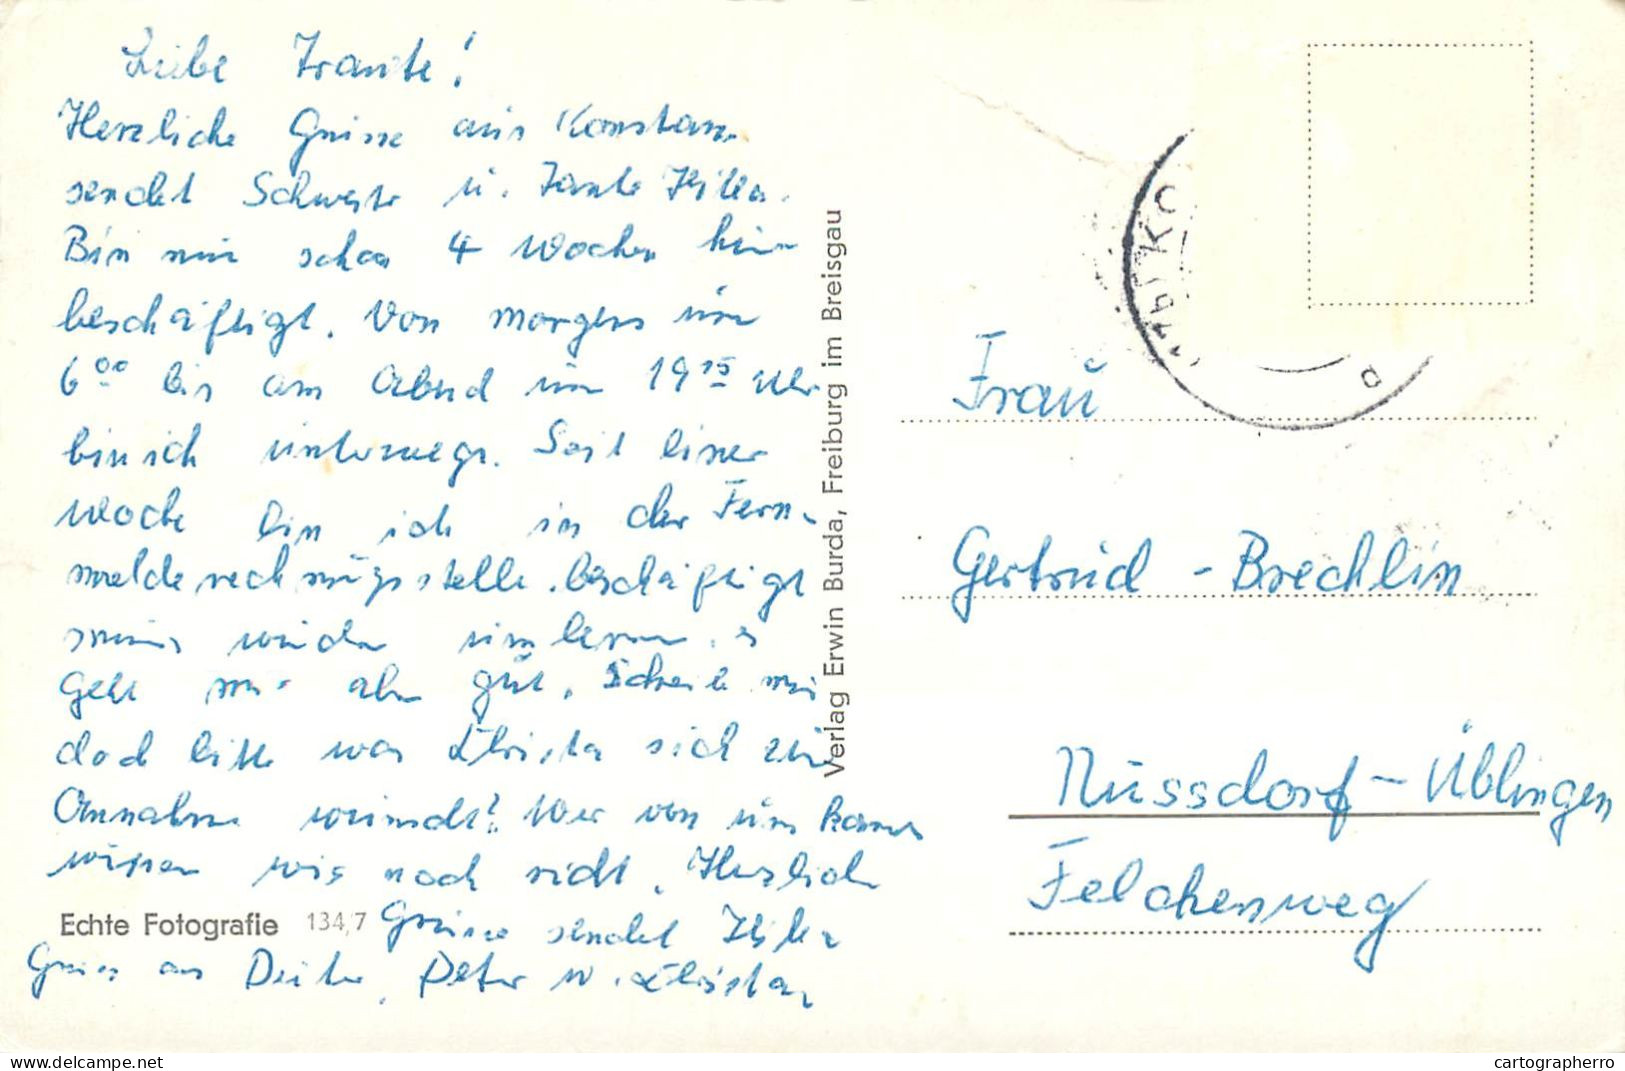 Liebe Traute!
Herzliche Grüsse aus Konstanz
sendet Schwester u. Tante Hilla.
Bin nun schon 4 Wochen hier
beschäftigt. Von morgens um
6 00 bis am Abend um 19 15 Uhr
bin ich unterwegs. Seit einer
Woche bin ich in der Fern-
melderechnungsstelle beschäftigt
muss wieder umlernen. es
geht mir aber gut. Schreib mir
doch bitte was Christa sich zur
Annahme wünscht? Wer von uns kommt
wissen wir noch nicht. Herzliche
Grüsse sendet Hilla
Gruss an Dieter, Peter u. Christa
Echte Fotografie 134/7
Verlag Erwin Burda, Freiburg im Breisgau
(17b) KO
a
Frau
Gertrud - Brechlin
Nussdorf - Üblingen
Felchenweg
cartographerro